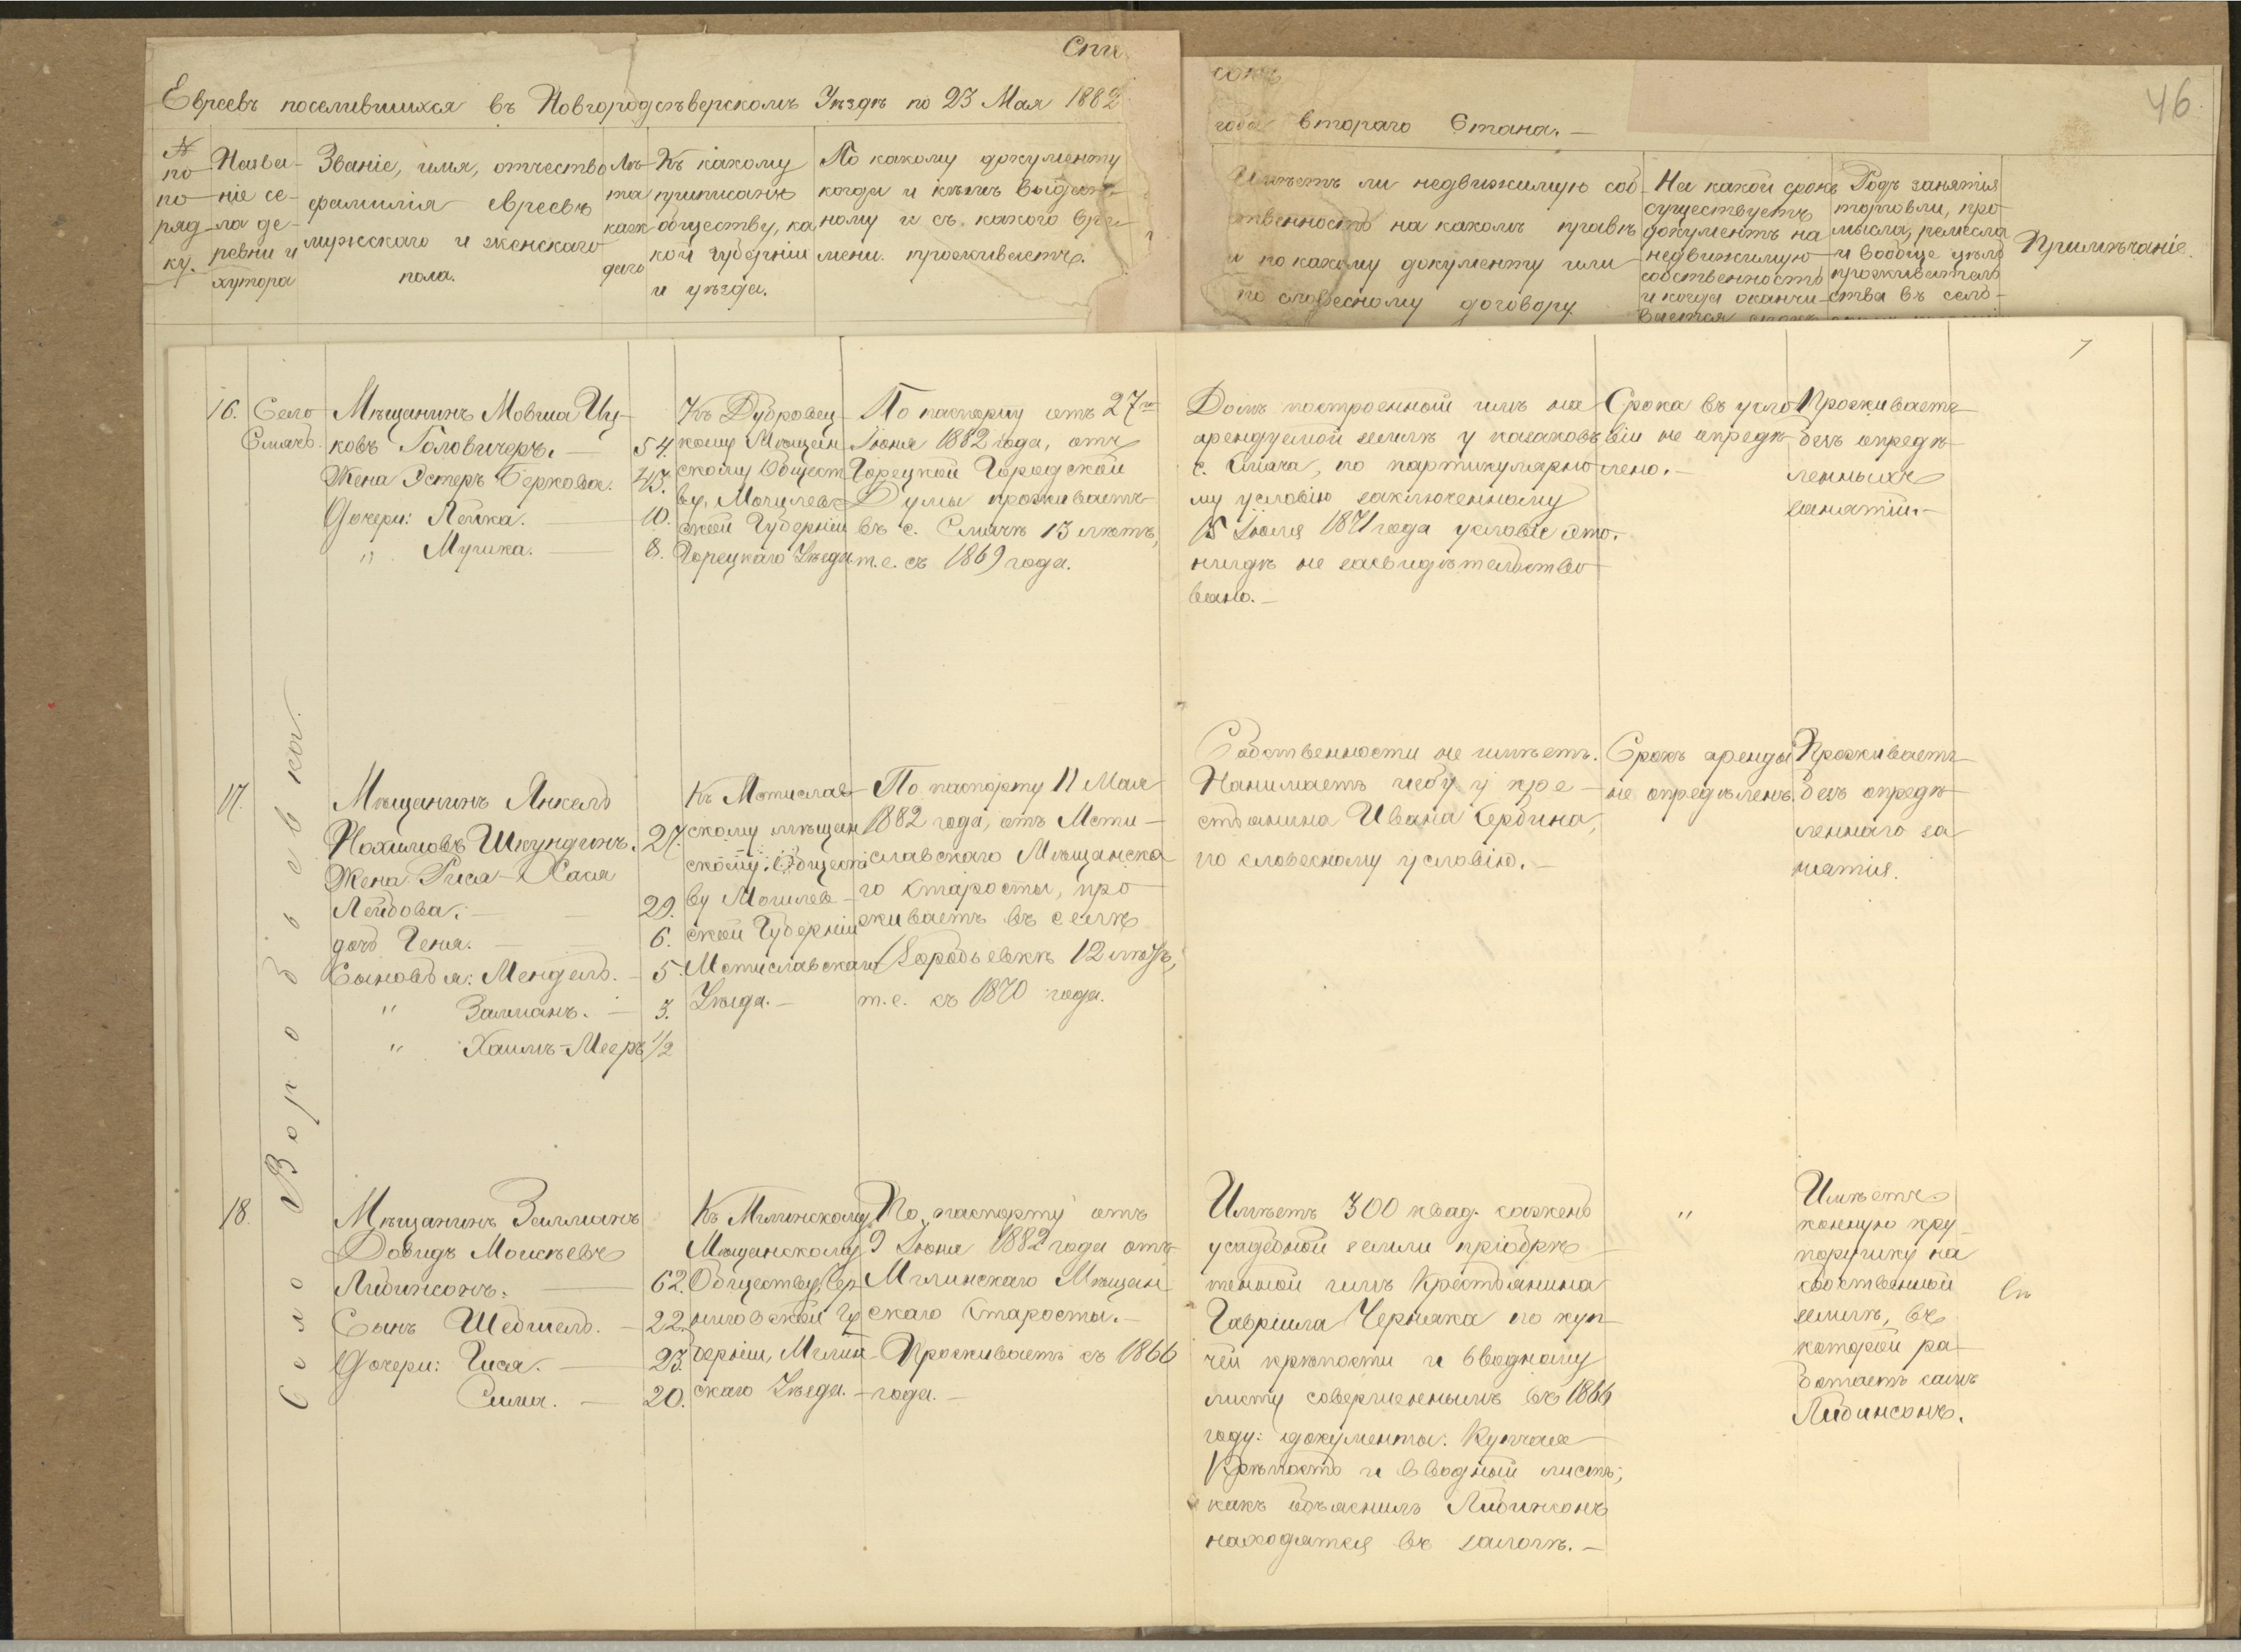 Спи
сокъ
46.
Евреевъ поселившихся въ Новгородсѣверскомъ Уѣздѣ по 23 Мая 1882
года втораго Стана. —
№ по по-ряд-ку.
Назва-ніе се-ла де-ревни и хутора
Званіе, имя, отчество
фамилія евреевъ
мужскаго и женскаго
пола.
Лѣ-
та
каж
даго
Къ какому
приписанъ
обществу, ка
кой губерніи
и уѣзда.
По какому документу
когда и кѣмъ выдан-
ному и съ какого вре-
мени проживаетъ.
Имѣетъ ли недвижимую соб-
ственность на какомъ правѣ
и по какому документу или
по словесному договору
На какой срокъ
существуетъ
документъ на
недвижимую
собственность
и когда оканчи-
вается срокъ
Родъ занятія
торговли, про
мысла, ремесла
и вообще цѣль
проживатель
ства въ селѣ-
Примѣчаніе.
7
16.
Село
Смячь.
Мѣщанинъ Мовша Иц-
ковъ Головичеръ. — 54.
Жена Эстеръ Беркова. 43.
Дочери: Лейка. — 10.
" Мушка. — 8.
Къ Дубровец-
кому Мѣщан
скому Общест
ву, Могилев-
ской Губерніи
Горецкаго Уѣзда
По паспорту отъ 27го
Іюня 1882 года, отъ
Горецкой Городской
Думы проживаетъ
въ с. Смячѣ 13 лѣтъ,
т.е. съ 1869 года.
Домъ построенный имъ на
арендуемой землѣ у казаковъ
с. Смяча, по партикулярно
му условію заключенному
15 Іюля 1871 года условіе это
нигдѣ не засвидѣтельство
вано. —
Срока въ усло
віи не опредѣ-
лено. —
Проживаетъ
безъ опредѣ-
ленныхъ
занятій. —
Село Воробьевка.
17.
Мѣщанинъ Янкель
Нохимовъ Шкундинъ. 27.
Жена Рися-Хася
Лейбова. — 29.
дочь Геня. — 6.
Сыновья: Мендель. — 5.
" Залманъ. — 3.
" Хаимъ-Мееръ 1/2
Къ Мстислав-
скому мѣщан
скому Общест
ву Могилев-
ской Губерніи
Мстиславскаго
Уѣзда. —
По паспорту 11 Мая
1882 года, отъ Мсти-
славскаго Мѣщанска
го Старосты, про
живаетъ въ селѣ
Воробьевкѣ 12 лѣтъ,
т.е. съ 1870 года.
Собственности не имѣетъ.
Нанимаетъ избу у кре-
стьянина Ивана Сербина,
по словесному условію. —
Срокъ аренды
не опредѣленъ.
Проживаетъ
безъ опредѣ-
леннаго за
нятія.
18.
Мѣщанинъ Залманъ
Довидъ Моисѣевъ
Либинсонъ. — 62.
Сынъ Шевшель. — 22.
Дочери: Гися. — 23.
Сима. — 20.
Къ Мглинскому
Мѣщанскому
Обществу, Чер
ниговской Гу
берніи, Мглин-
скаго Уѣзда. —
По паспорту отъ
9 Іюня 1882 года отъ
Мглинскаго Мѣщан
скаго Старосты. —
Проживаетъ съ 1866
года. —
Имѣетъ 300 квад. сажень
усадебной земли пріобрѣ-
тенной имъ Крестьянина
Гавріила Черняка по куп-
чей крѣпости и вводному
листу совершеннымъ въ 1866
году: документы: Купчая
Крѣпость и вводный листъ,
какъ объяснилъ Либинсонъ
находятся въ залогѣ. —
"
Имѣетъ
конную кру
порушку на
собственной
землѣ, въ
которой ра
ботаетъ самъ
Либинсонъ.